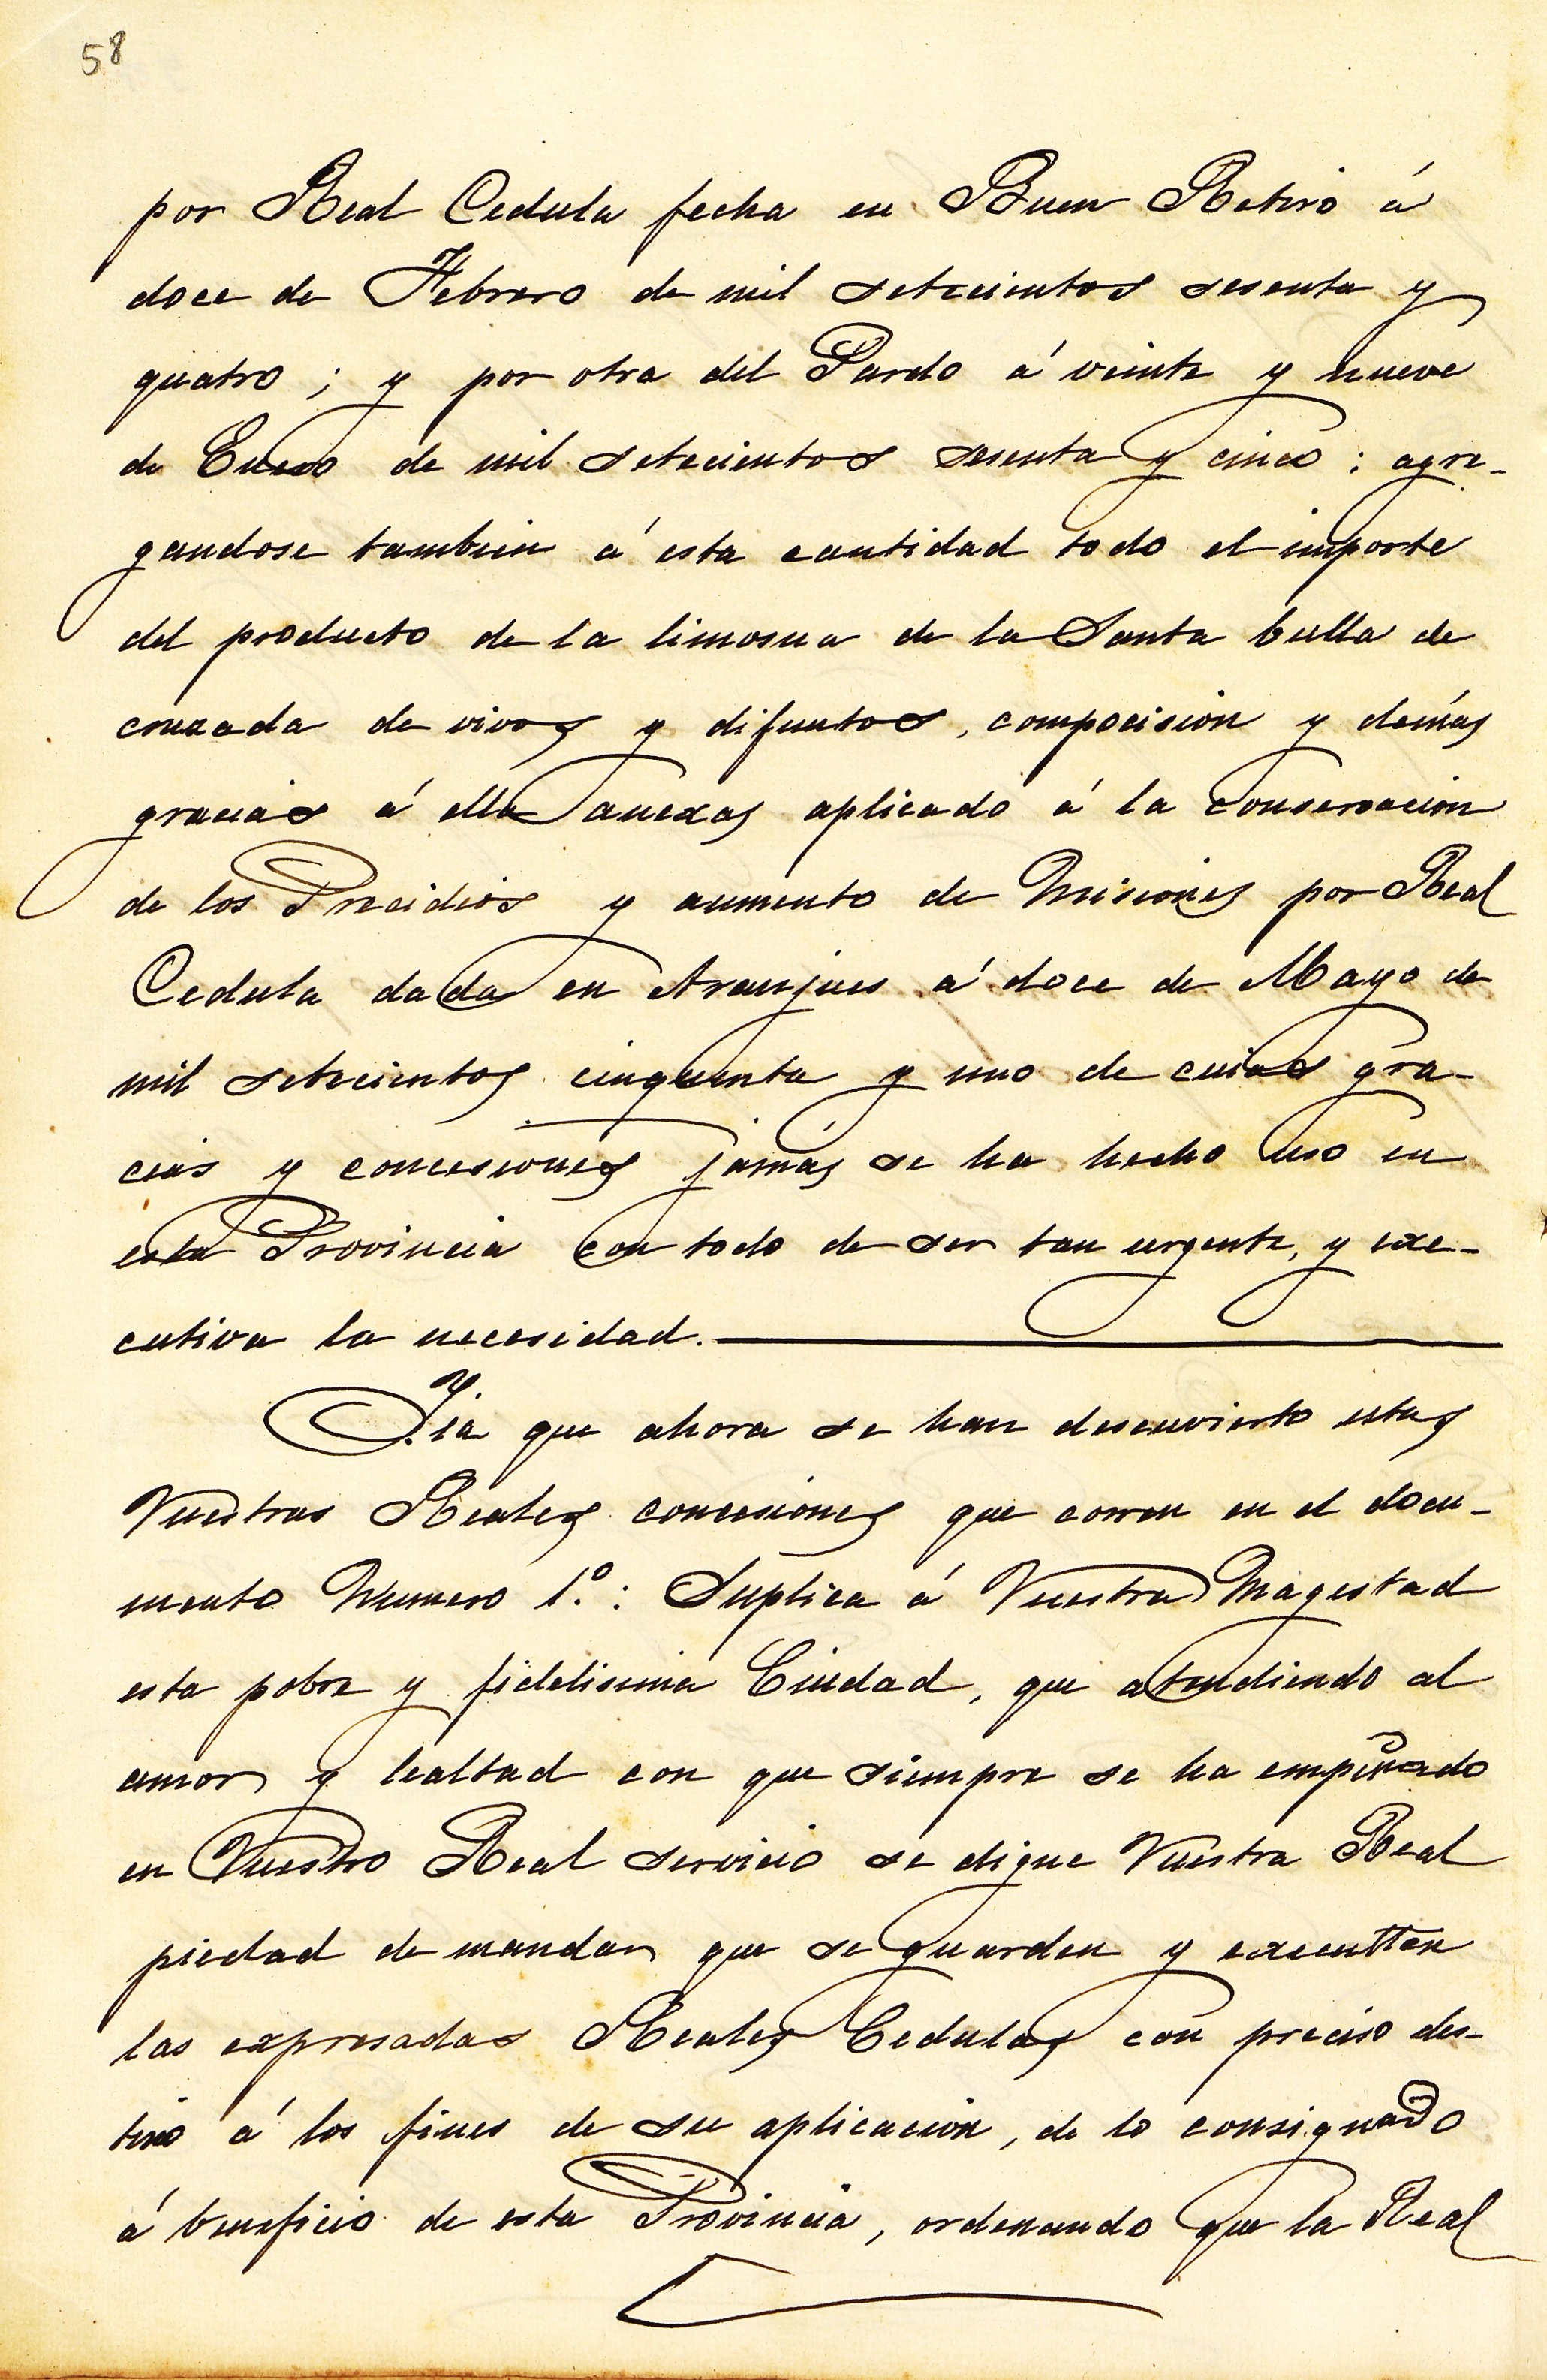 58
por Real Cedula fecha en Buen Retiro á
doce de Febrero de mil setecientos sesenta y
quatro ; y por otra del Pardo á veinte y nueve
de Enero de mil setecientos sesenta y cinco : agre-
gandose tambien á esta cantidad todo el importe
del producto de la limosna de la Santa bulla de
cruzada de vivos y difuntos, compocision y demás
gracias á ella anexas aplicado á la conservacion
de los Precidios y aumento de Misiones por Real
Cedula dada en Aranjues á doce de Mayo de
mil setecientos cinquenta y uno de cuias gra-
cias y concesiones jamás se ha hecho uso en
esta Provincia con todo de ser tan urgente, y exe-
cutiva la necesidad.
Yia que ahora se han descuvierto estas
Vuestras Reales concesiones que corren en el docu-
mento Numero 1.º : Suplica á Vuestra Magestad
esta pobre y fidelisima Ciudad, que atendiendo al
amor y lealtad con que siempre se ha empleado
en Vuestro Real servicio se digne Vuestra Real
piedad de mandar que se guarden y executten
las expresadas Reales Cedulas con preciso des-
tino á los fines de su aplicacion, de lo consignado
á beneficio de esta Provincia, ordenando que la Real